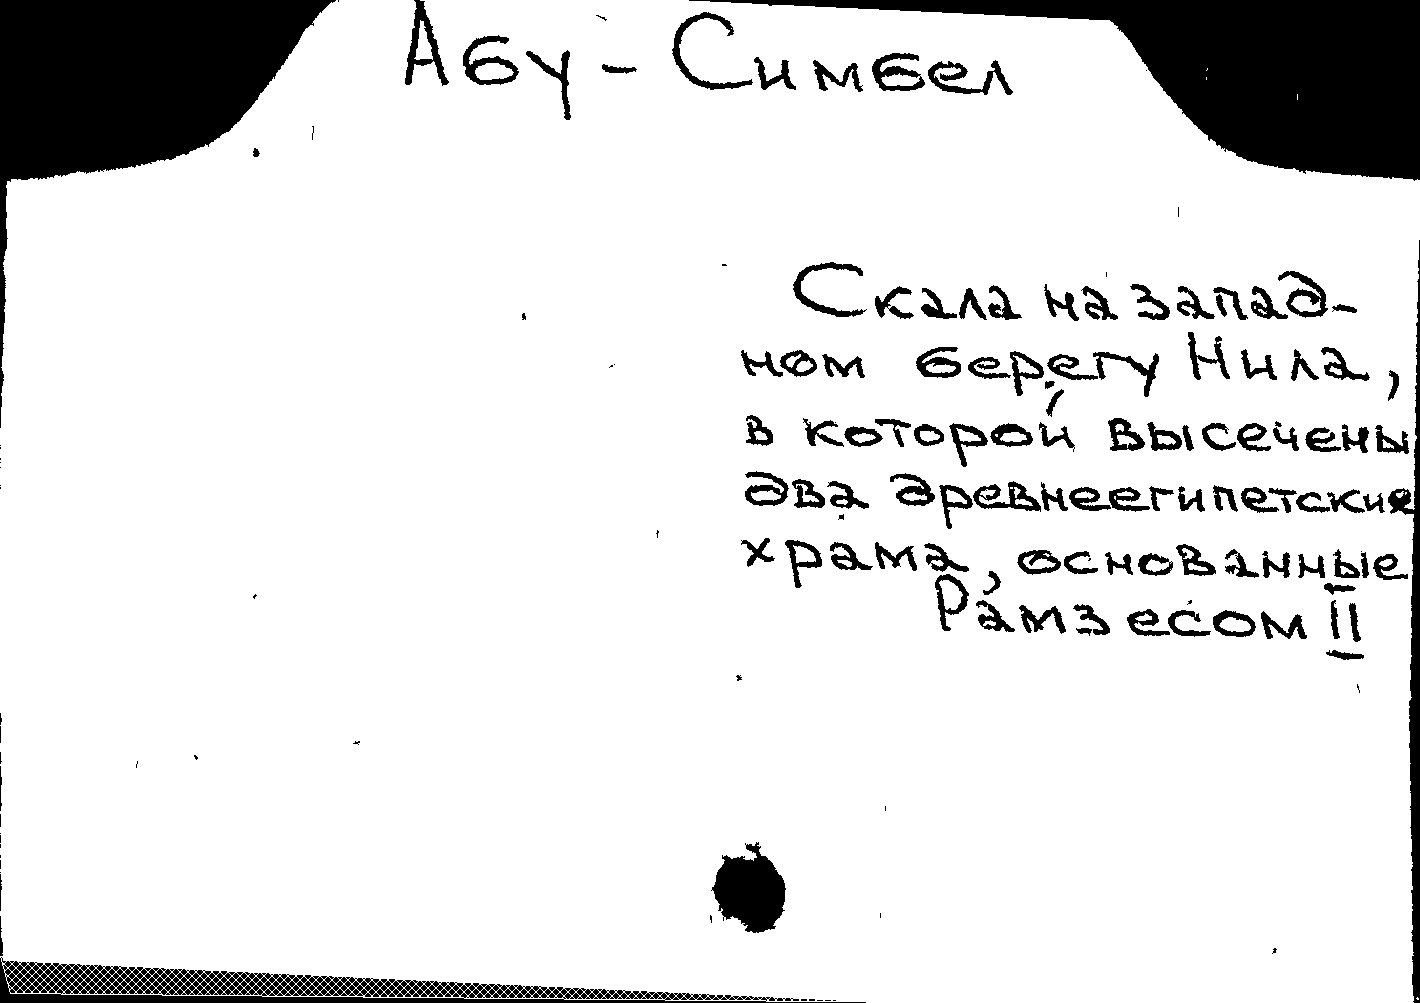 Абу-Симбел
Скала на запад-
ном берегу Нила,
в которой высечены
два древнеегипетские
храма, основанные
Рамзесом II